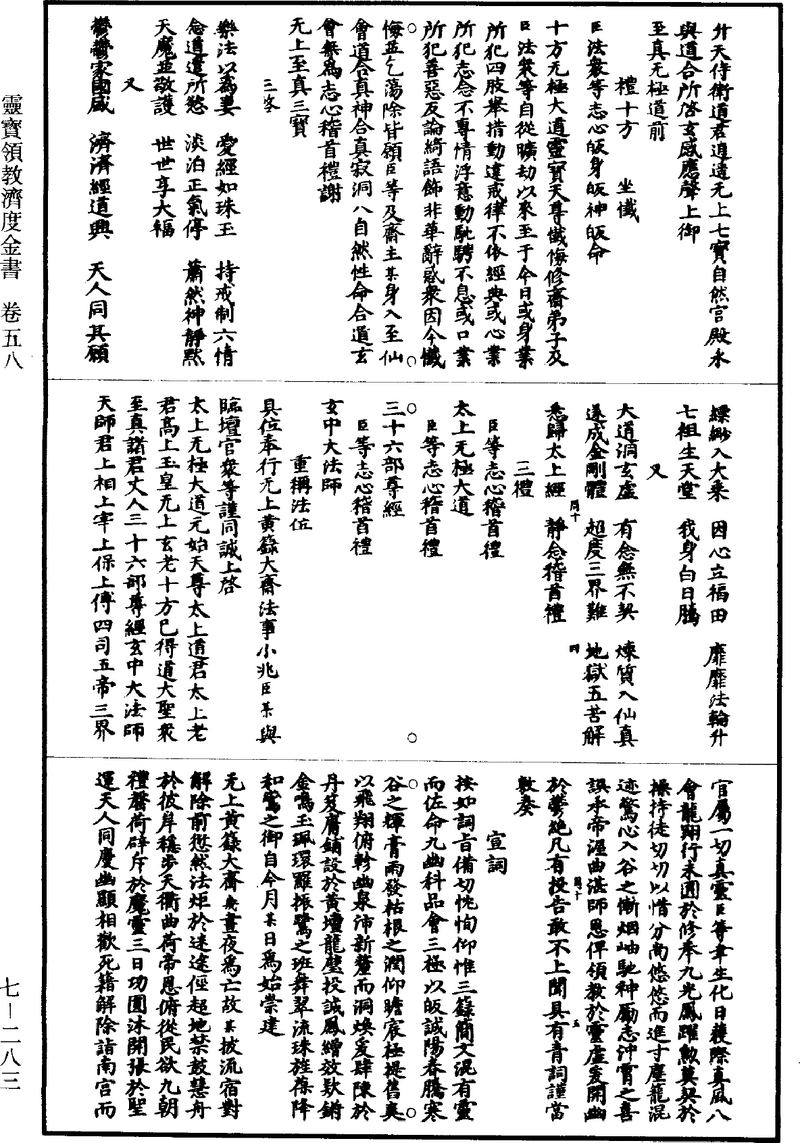 靈寶領教濟度金書　卷五八
七—二八三
廾天侍衛道君逍遙无上七寶自然宮殿永
與道合所啓玄感應聲上御
至真无極道前
禮十方　坐懺
臣法衆等志心皈身皈神皈命
十方无極大道靈寶天尊懺悔修齋弟子及
臣法衆等自從曠劫以來至于今日或身業
所犯四肢舉措動違戒律不依經典或心業
所犯志念不專情浮意動馳騁不息或口業
所犯善惡反論綺語飾非華辭惑衆因今懺
悔並乞蕩除皆願臣等及齋主某身入至仙
會道合真神合真寂洞八自然性命合道玄
會無爲志心稽首禮謝
无上至真三寶
三啓
樂法以爲妻　愛經如珠玉　持戒制六情
念道遣所慾　淡泊正氣停　蕭然神靜默
天魔並敬護　世世享大福
又
鬱鬱家國盛　濟濟經道興　天人同其願
縹緲入大乘　因心立福田　靡靡法輪升
七祖生天堂　我身白日騰
又
大道洞玄虛　有念無不契　煉質入仙真
遂成金剛體　超度三界難　地獄五苦解
悉歸太上經　靜念稽首禮
三禮
臣等志心稽首禮
太上无極大道
臣等志心稽首禮
三十六部尊經
臣等志心稽首禮
玄中大法師
重稱法位
具位奉行无上黃籙大齋法事小兆臣某與
臨壇官衆等謹同誠上啓
太上无極大道元始天尊太上道君太上老
君高上玉皇无上玄老十方已得道大聖衆
至真諸君丈人三十六部尊經玄中大法師
天師君上相上宰上保上傅四司五帝三界
官屬一切真靈臣等幸生化日獲際真風八
會龍翔行未圓於修奉九光鳳躍勲莫契於
操持徒切切以惜分尚悠悠而進寸塵龍混
迹驚心入谷之慚烟岫馳神勵志沖霄之喜
誤承帝渥曲湛師恩俾領教於靈虛爰開幽
於鬱絶凡有投告敢不上聞具有青詞謹當
敷奏
宣詞
按如詞旨備切忱恂仰惟三籙簡文混有靈
而佐命九幽科品會三極以皈誠陽春騰寒
谷之輝膏雨發枯根之潤仰瞻宸極提舊奭
以飛翔俯軫幽泉沛新釐而洞煥爰肆陳於
丹笈廣鋪設於黃壇龍璧投誠鳳繒效欵鏘
金鳴玉珮環羅振鷺之班舞翠流珠旌葆降
和鸞之御自今月某日爲始崇建
无上黃籙大齋幾晝夜爲亡故某披流宿對
解除前愆然法炬於迷途徑起地禁設慧舟
於彼岸穩步天衢曲荷帝恩俯從民欲九朝
禮罄荷辟斥於魔靈三日功圓沐開張於聖
運天人同慶幽顯相歡死籍解除詣南宮而